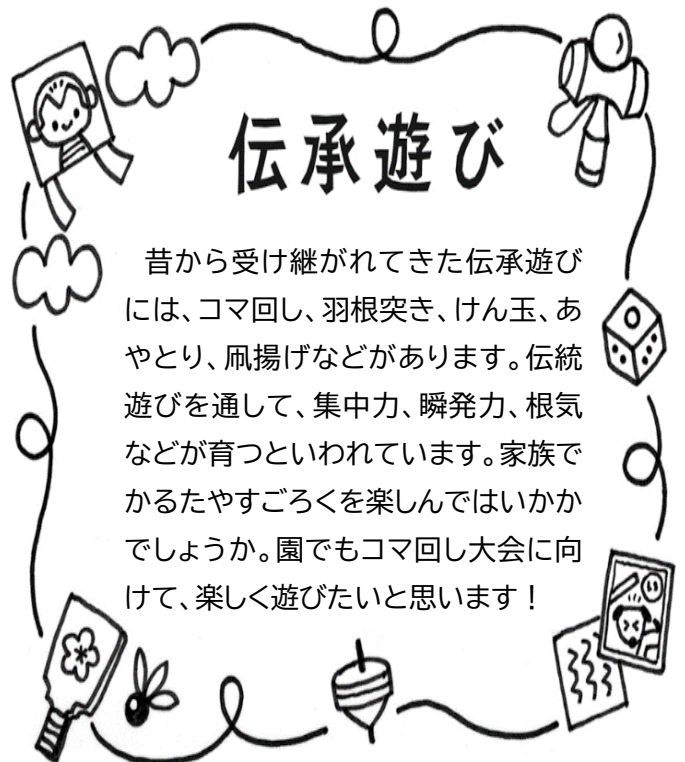 伝承遊び
昔から受け継がれてきた伝承遊び
には、コマ回し、羽根突き、けん玉、あ
やとり、凧揚げなどがあります。伝統
遊びを通して、集中力、瞬発力、根気
などが育つといわれています。家族で
かるたやすごろくを楽しんではいかか
でしょうか。園でもコマ回し大会に向
けて、楽しく遊びたいと思います！
い